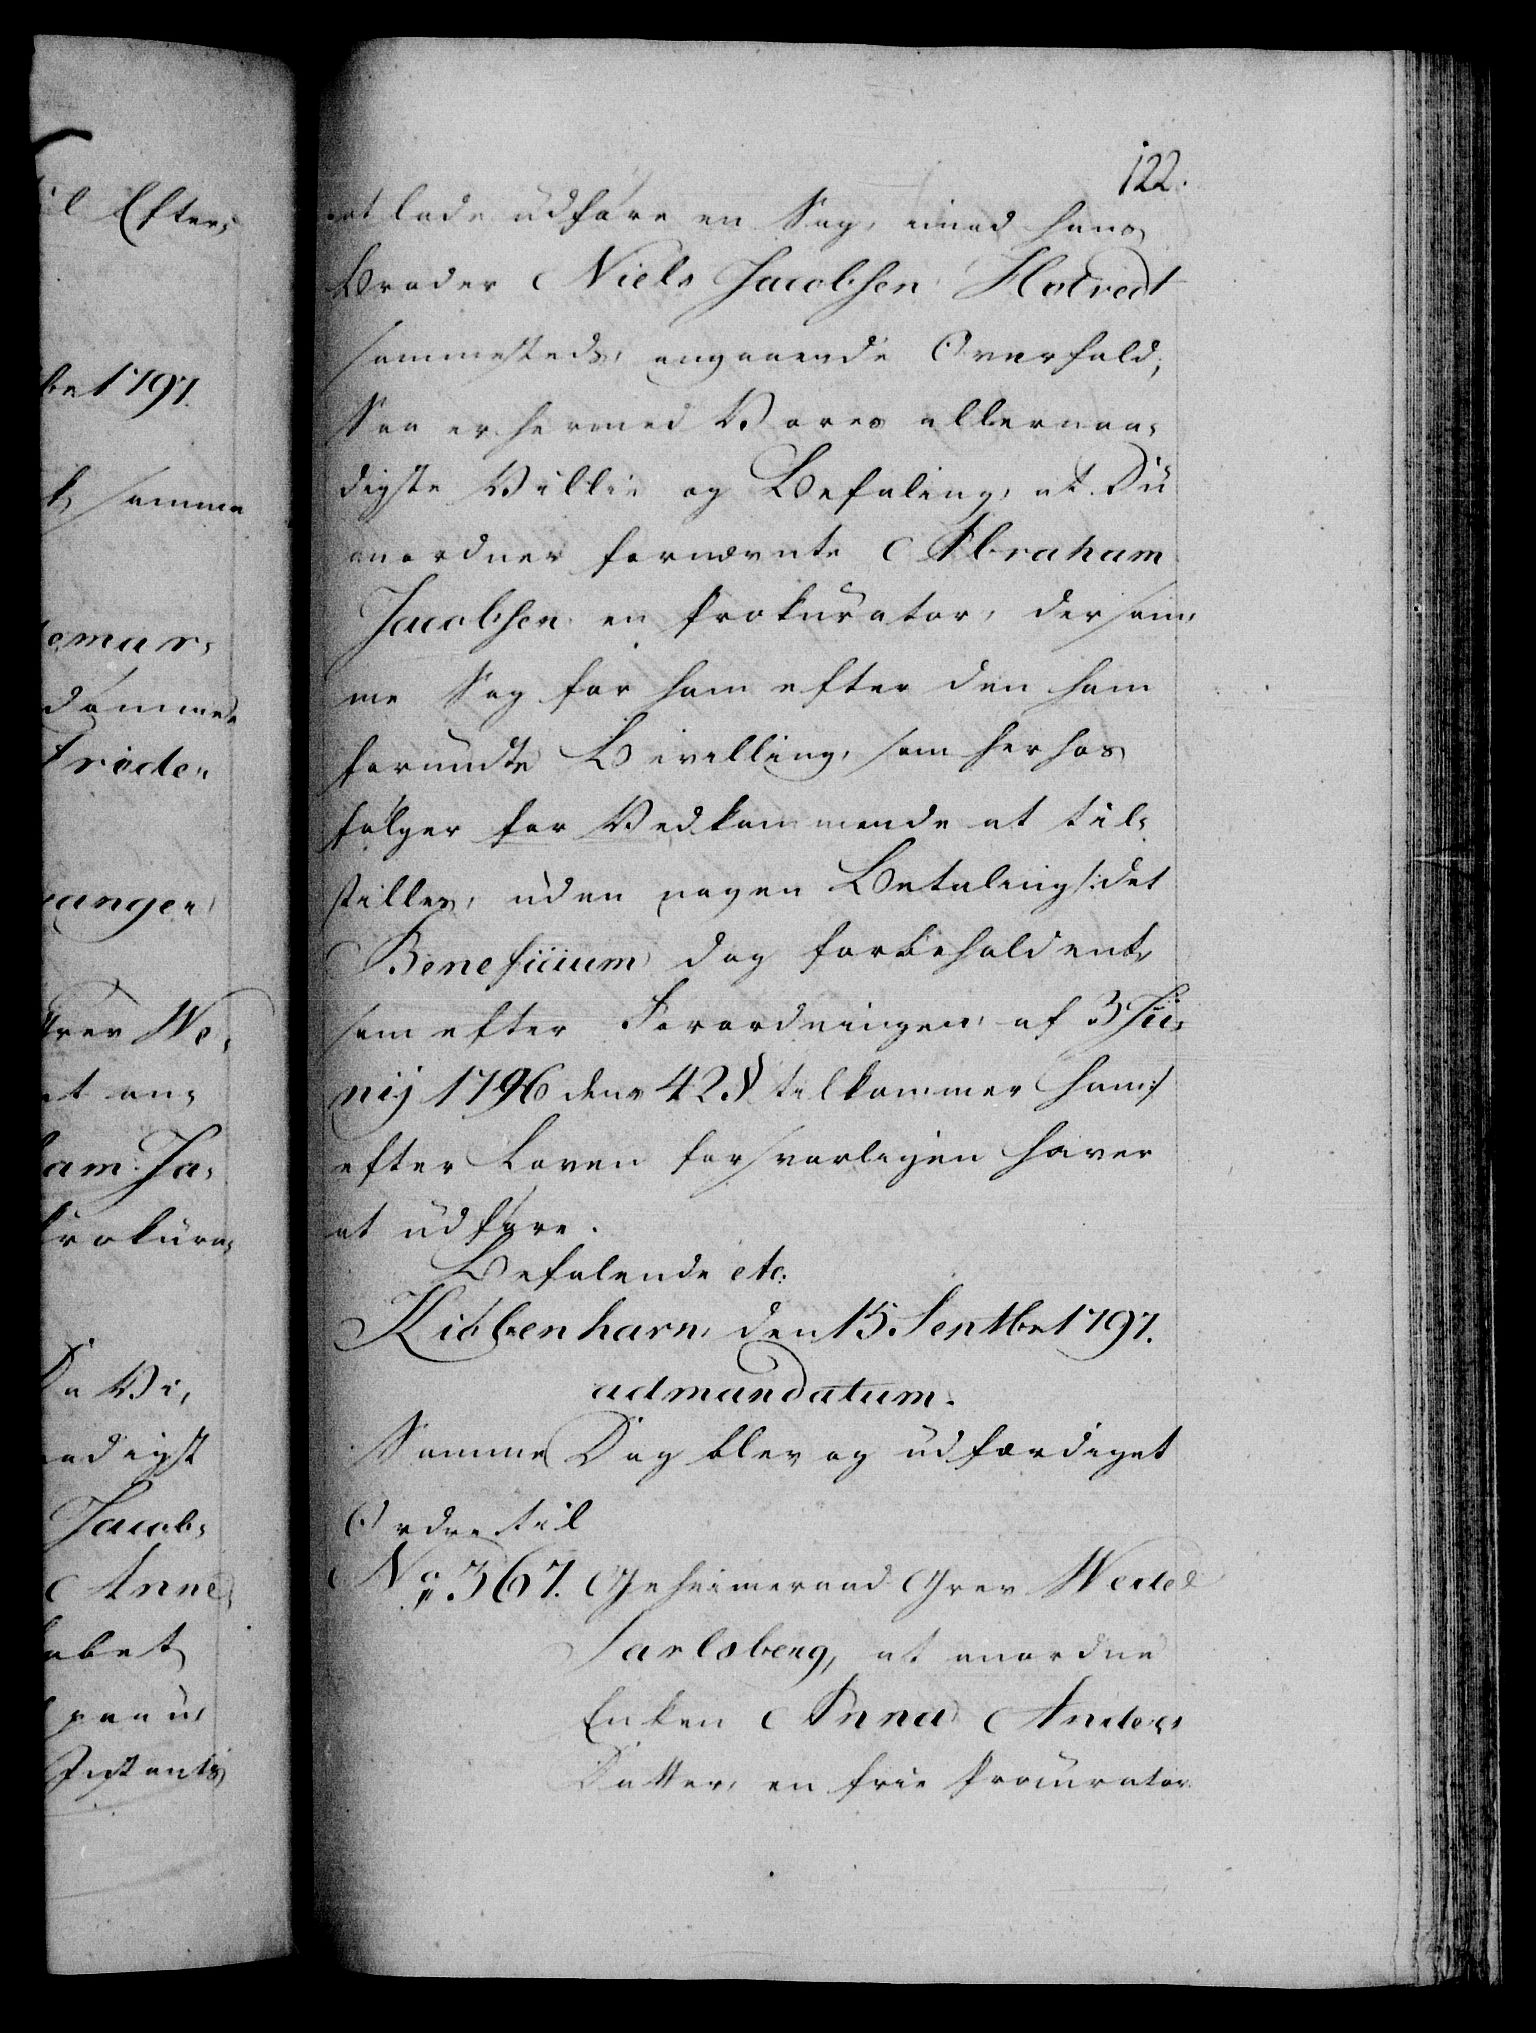 122.
at lade udføre en Sag, imod hans
Broder Niels Jacobsen Holvedt
sammesteds, angaaende Overfald;
Saa er hermed Vores allernaa-
digste Villie og Befaling, at Du
anordner fornævnte Abraham
Jacobsen en Prokurator, der sam-
me Sag for ham efter den ham
forundte Bevilling, som herhos
følger for Vedkommende at til-
stilles, uden nogen Betaling /: det
Beneficium dog forbeholdent,
som efter Forordningen af 3 Ju-
nij 1796 dens 42 § tilkommer ham :/
efter Loven forsvarligen haver
at udføre.
Befalende etc:
Kiøbenhavn, den 15 Septbr 1797.
ad mandatum.
Samme Dag blev og udfærdiget
Ordre til
No 367. Geheimeraad Grev Wedel
Jarlsberg, at anordne
Enken Anna Anders
Datter, en frie Procurator
il Efter-
br 1797.
samme
emar-
dømme
Friede-
vanger
Grev We-
at an-
ham Ja-
Prokura-
Da Vi,
naadigst
Jacob-
Anne
paa u-
Instants